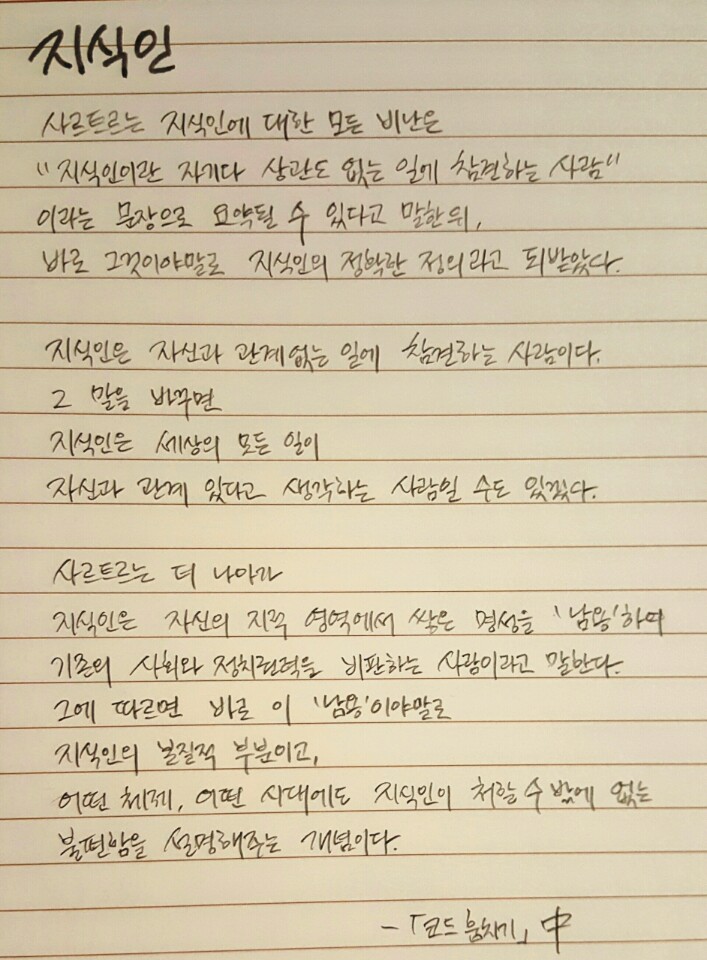 지식인
사르트르는 지식인에 대한 모든 비난은
"지식인이란 자기다 상관도 없는 일에 참견하는 사람"
이라는 문장으로 요약될 수 있다고 말한뒤,
바로 그것이야말로 지식인의 정확한 정의라고 되받았다.
지식인은 자신과 관계없는 일에 참견하는 사람이다.
그 말을 바꾸면
지식인은 세상의 모든 일이
자신과 관계 있다고 생각하는 사람일 수도 있겠다.
사르트르는 더 나아가
지식인은 자신의 지적 영역에서 쌓은 명성을 '남용'하여
기존의 사회와 정치권력을 비판하는 사람이라고 말한다.
그에 따르면 바로 이 '남용'이야말로
지식인의 본질적 부분이고,
어떤 체제, 어떤 시대에도 지식인이 처할 수 밖에 없는
불편함을 설명해주는 개념이다.
-「코드 훔치기」中